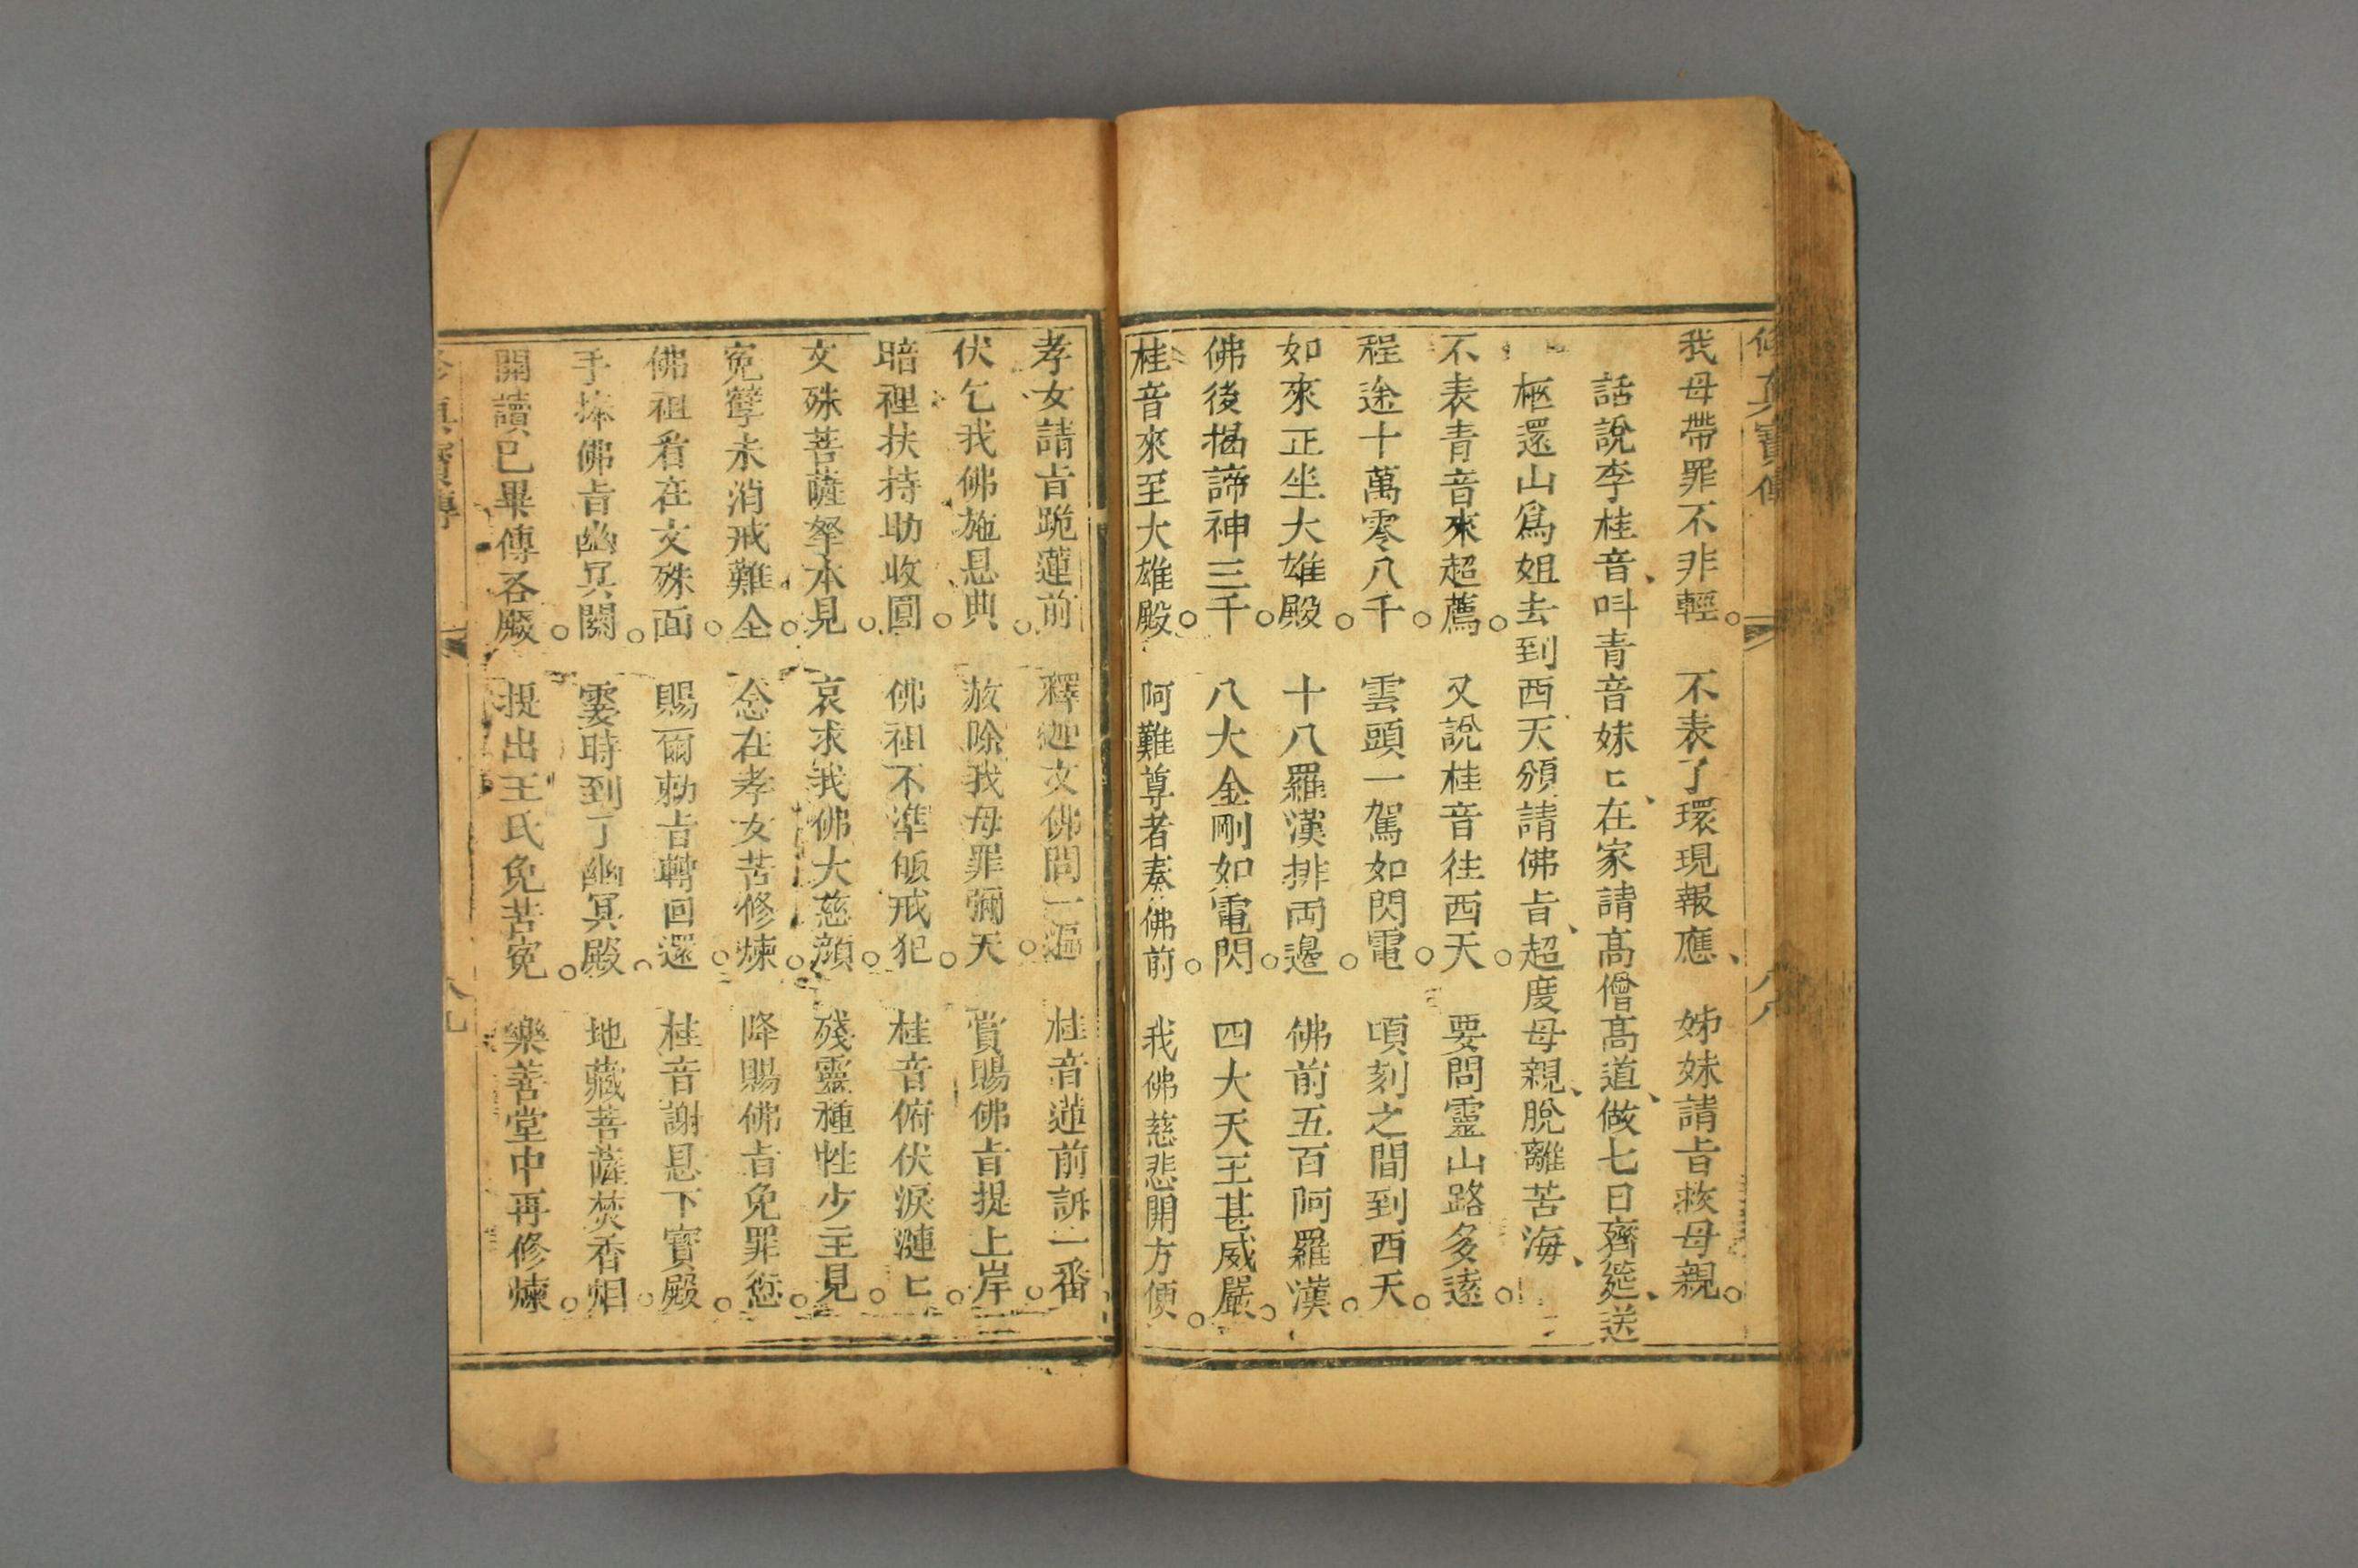 修真寶傳 八八
我母帶罪不非輕。不表了環現報應、姊妹請旨救母親。
話說李桂音、叫青音妹〻、在家請高僧高道、做七日齋筵、送
柩還山、爲姐去到西天、頒請佛旨、超度母親、脫離苦海、
不表青音來超薦。又說桂音往西天。要問靈山路多遠。
程途十萬零八千。雲頭一駕如閃電。頃刻之間到西天。
如來正坐大雄殿。十八羅漢排両邊。佛前五百阿羅漢。
佛後揭諦神三千。八大金剛如電閃。四大天王甚威嚴。
桂音來至大雄殿。阿難尊者奏佛前。我佛慈悲開方便。
孝女請旨跪蓮前 釋迦文佛問一遍。桂音蓮前訴一番。
伏乞我佛施恩典。赦除我母罪彌天。賞賜佛旨提上岸。
暗裡扶持助收圓。佛祖不準皈戒犯。桂音俯伏淚漣〻。
文殊菩薩拏本見。哀求我佛大慈顔。殘靈種性少主見。
寃孽未消戒難全。念在孝女苦修煉。降賜佛旨免罪愆。
佛祖看在文殊面。賜爾勅旨轉回還。桂音謝恩下寶殿。
手捧佛旨幽冥關。霎時到了幽冥殿。地藏菩薩焚香烟。
開讀已畢傳各殿。提出王氏免苦寃。樂善堂中再修煉。
修真寶傳 八九